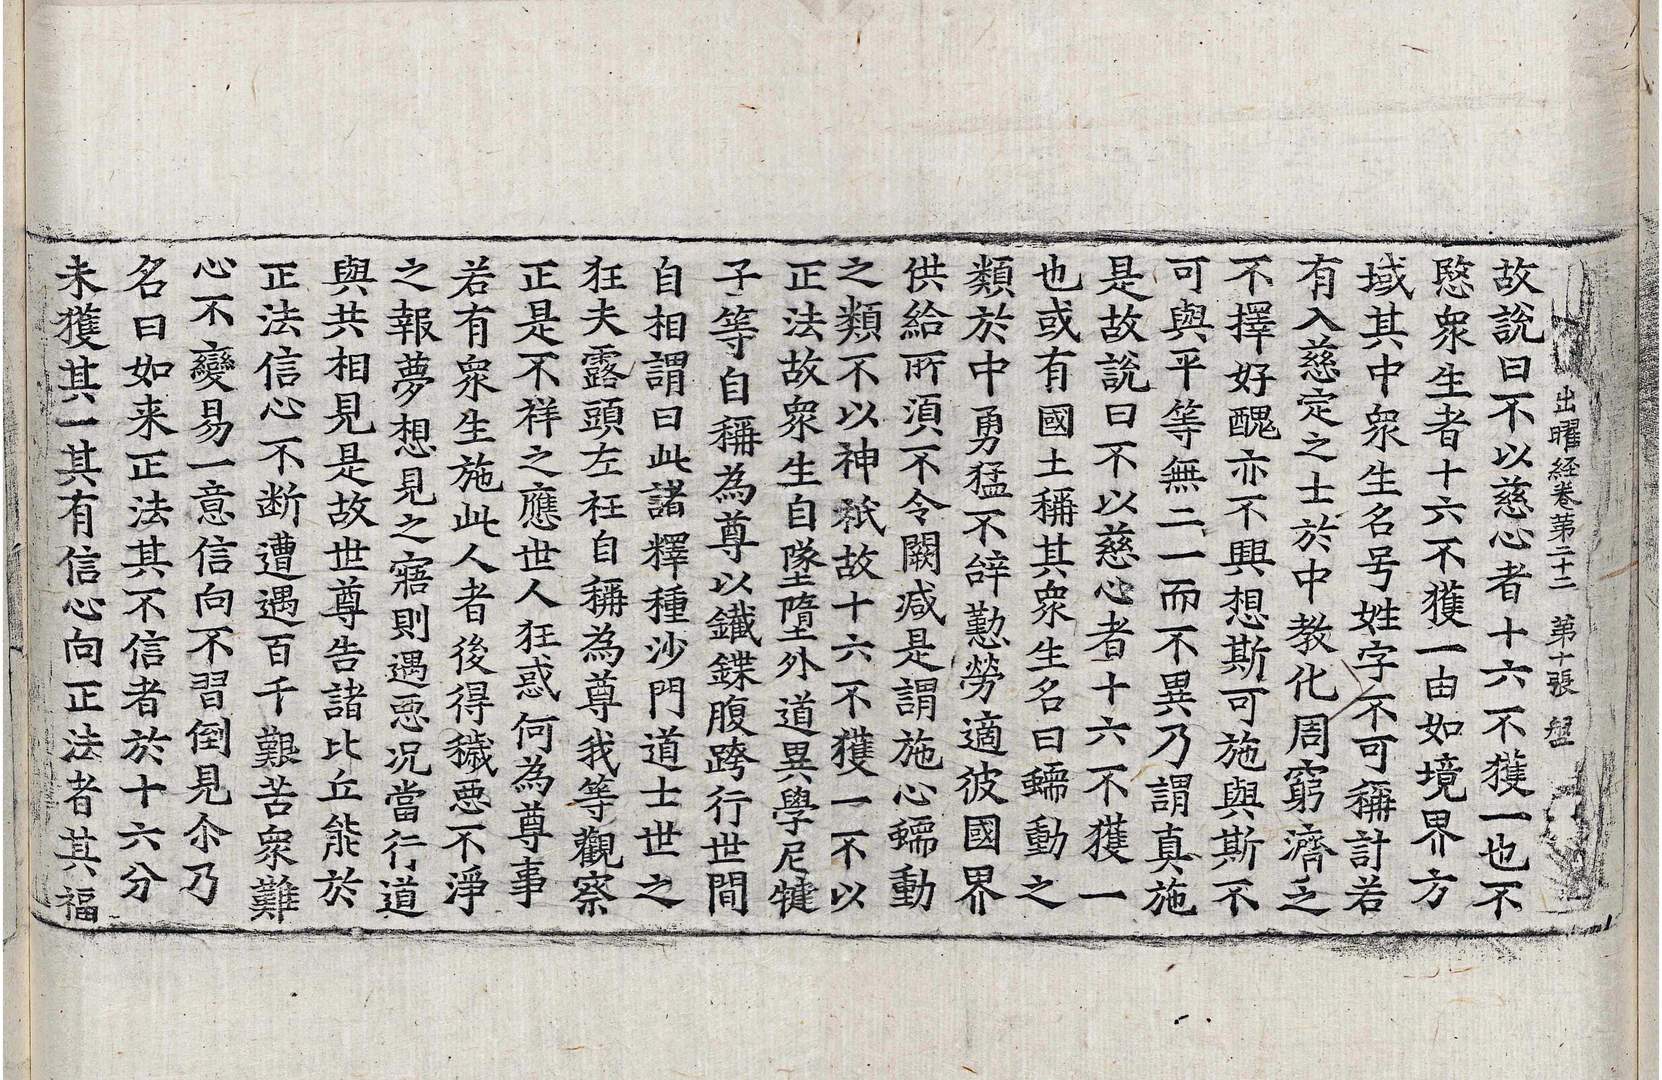 出曜経巻第二十二 第十張 盤
故說曰不以慈心者十六不獲一也不
愍衆生者十六不獲一由如境界方
域其中衆生名号姓字不可稱計若
有入慈定之士於中教化周窮濟乏
不擇好醜亦不興想斯可施與斯不
可與平等無二一而不異乃謂真施
是故說曰不以慈心者十六不獲一
也或有國土稱其衆生名曰蠕動之
類於中勇猛不辝懃勞適彼國界
供給所湏不令闕减是謂施心蠕動
之類不以神祇故十六不獲一不以
正法故衆生自墜墮外道異學尼犍
子等自稱為尊以鐵鍱腹跨行世間
自相謂曰此諸釋種沙門道士世之
狂夫露頭左衽自稱為尊我等觀察
正是不祥之應世人狂惑何為尊事
若有衆生施此人者後得穢惡不淨
之報夢想見之寤則遇惡况當行道
與共相見是故世尊告諸比丘能於
正法信心不断遭遇百千艱苦衆難
心不變易一意信向不習倒見尒乃
名曰如来正法其不信者於十六分
未獲其一其有信心向正法者其福